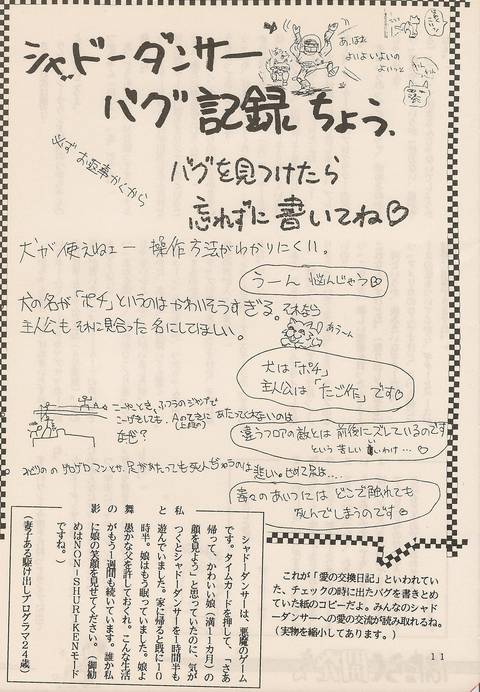 シャドーダンサー
バグ記録ちょう、
あ、ほれ
よいよいよいの
よいっと
必ずお返事かくから
バグを見つけたら
忘れずに書いてね♡
犬が使えねェー 操作方法がわかりにくい。
うーん 悩んじゃう♡
犬の名が「ポチ」というのはかわいそうすぎる。それなら
主人公もそれに見合った名にしてほしい。
あうーん
犬は「ポチ」
主人公は「たご作」です♡
こーゆーとき、ふつうのジャンプで
こーげきしても、Aのてきにあたってくれないのは
(上段の)
なぜ?
違うフロアの敵とは前後にズレているのです
という苦しい言いわけ…
足があたっても死んぢゃうのは悲しい。せめて足は……
毒々のあいつにはどこで触れても
死んでしまうのです♡
シャドーダンサーは、悪魔のゲーム
です。タイムカードを押して、「さあ
帰って、かわいい娘(満11カ月)の
顔を見よう」と思っていたのに、気が
つくとシャドーダンサーを1時間半も
遊んでいました。家に帰ると既に10
時半。娘はもう眠っていました。娘よ
愚かな父を許しておくれ。こんな生活
がもう1週間も続いています。誰か私
に娘の笑顔を見せてください。(御勧
めはNON-SHURIKENモード
ですね。)
(妻子ある駆け出しプログラマ24歳)
私
と
舞
影
これが「愛の交換日記」といわれてい
た、チェックの時に出たバグを書きとめ
ていた紙のコピーだよ。みんなのシャド
ーダンサーへの愛の交流が読み取れるね。
(実物を縮小してあります。)
11